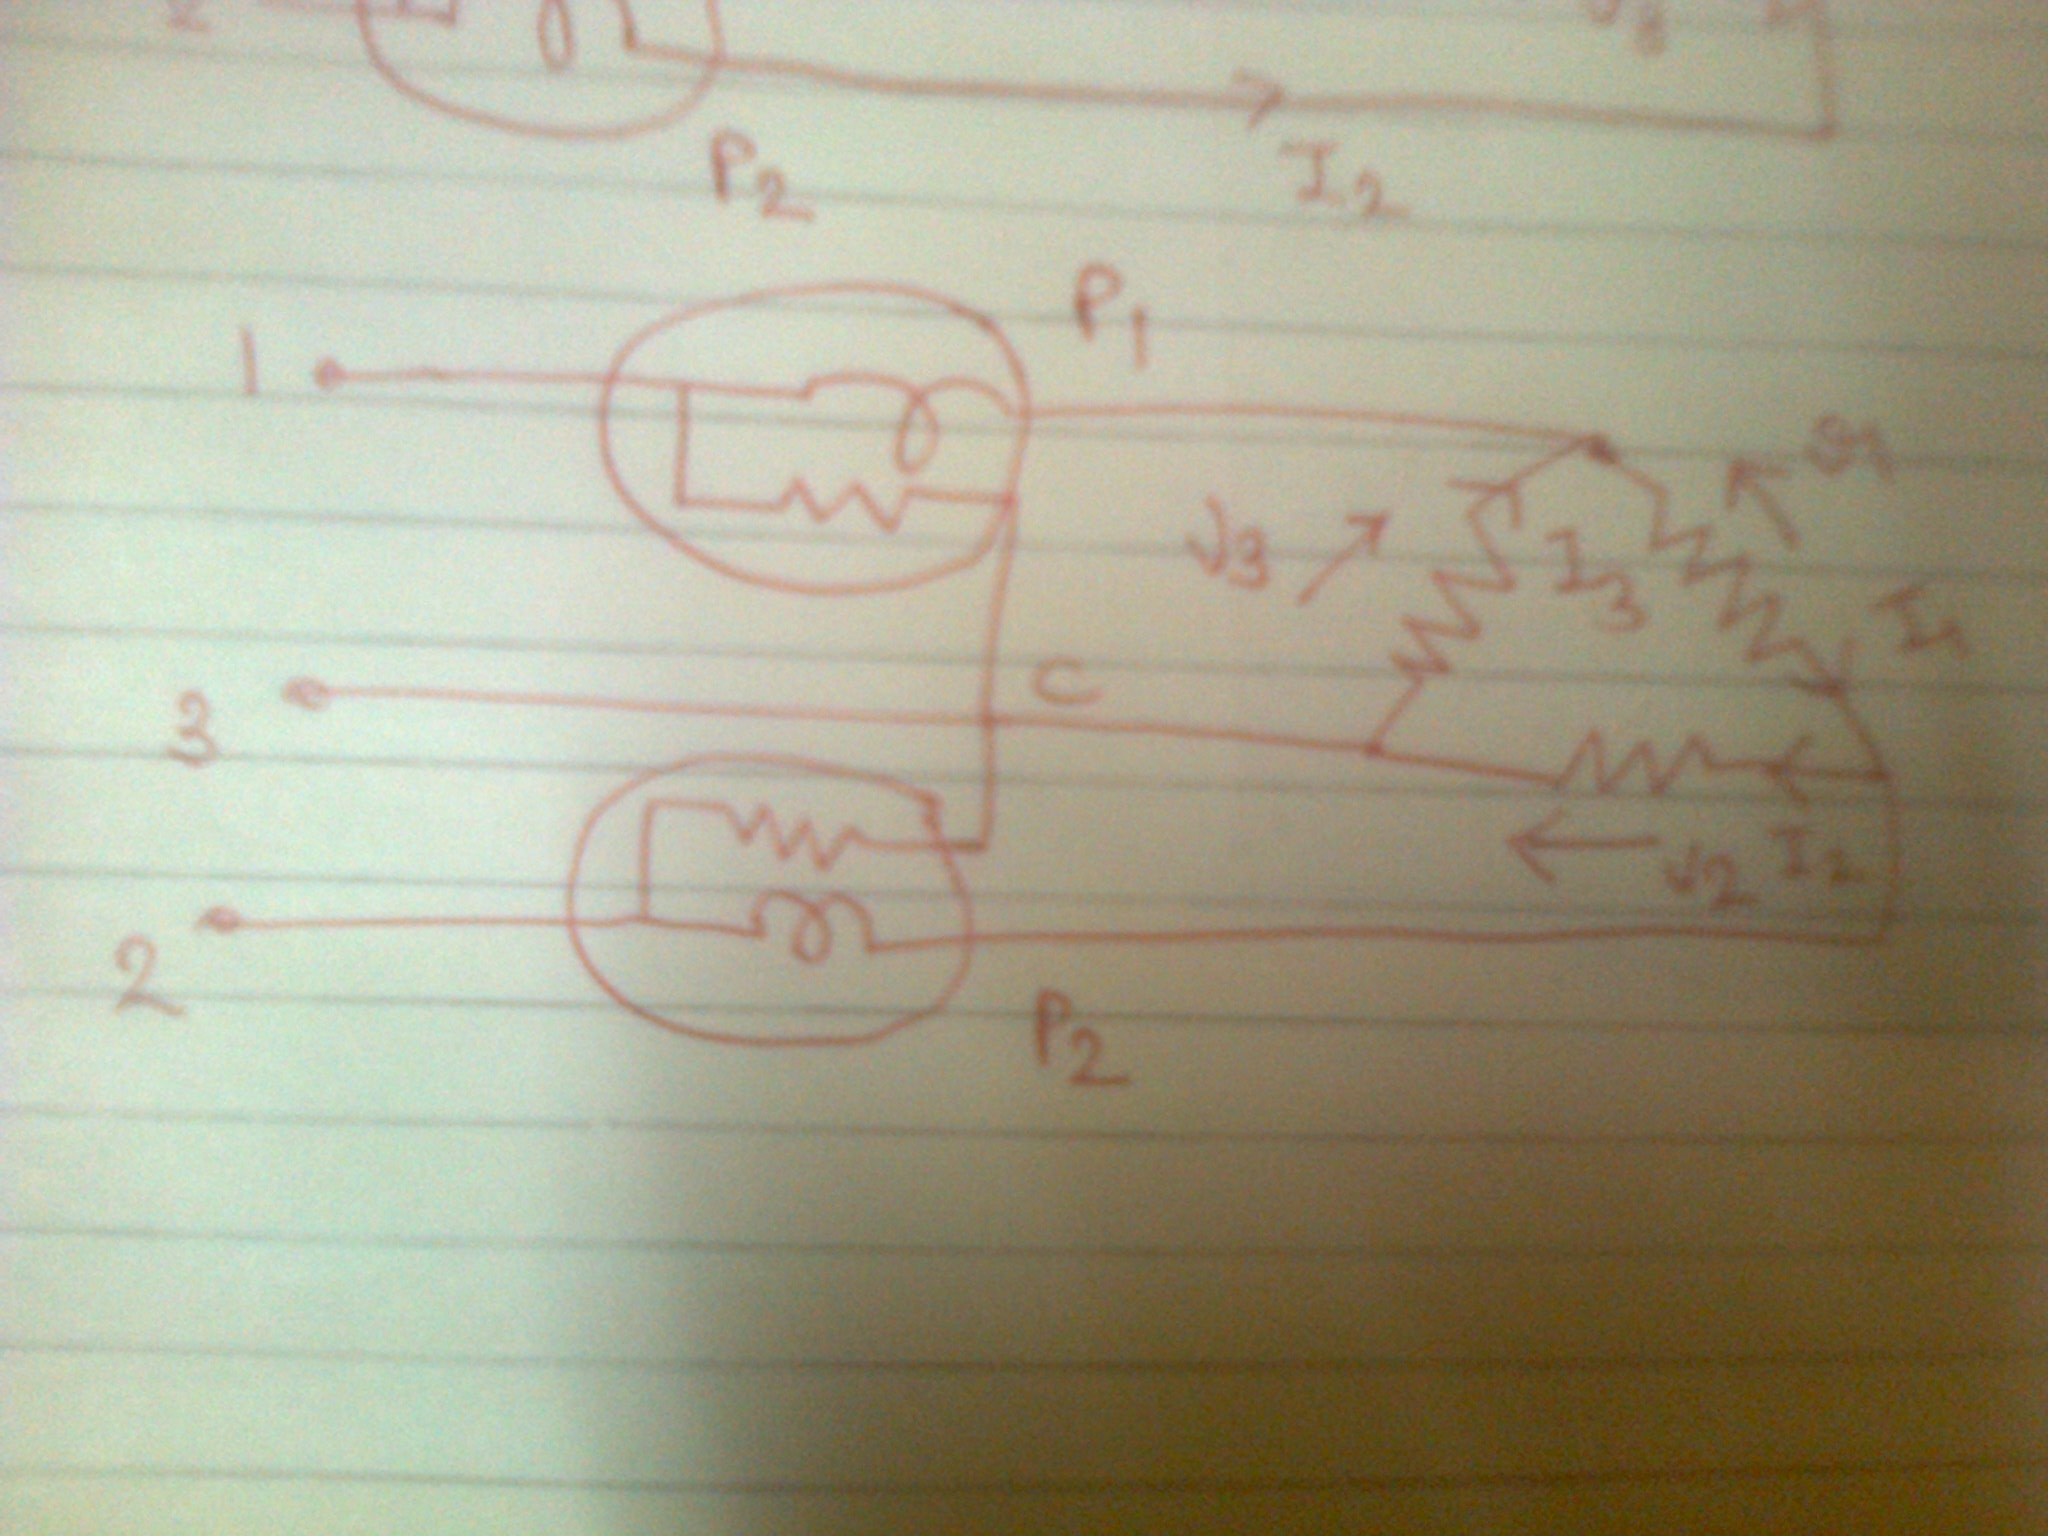 P2
I2
P1
1
V3
I3
I1
C
3
V2 I2
2
P2